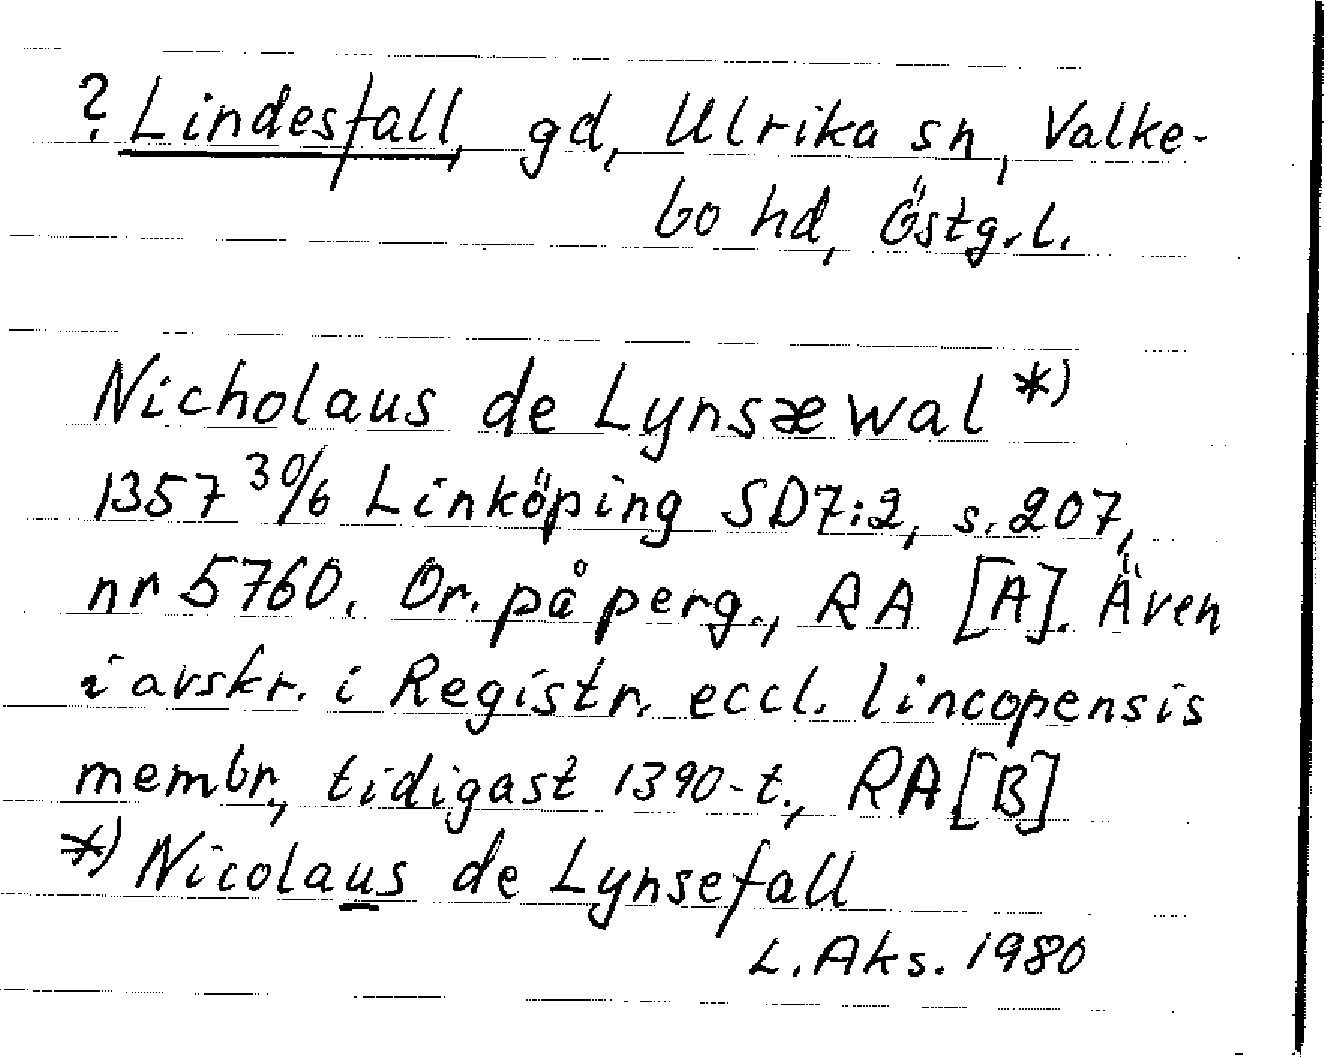 ? Lindesfall, gd, Ulrika sn, Valke-
bo hd, Östg.l.
Nicholaus de Lynsæwal *)
1357 30/6 Linköping SD7:2, s. 207,
nr 5760. Or. på perg., RA [A]. Även
i avskr. i Registr. eccl. lincopensis
membr., tidigast 1390-t., RA [B]
*) Nicolaus de Lynsefall
L. Aks. 1980